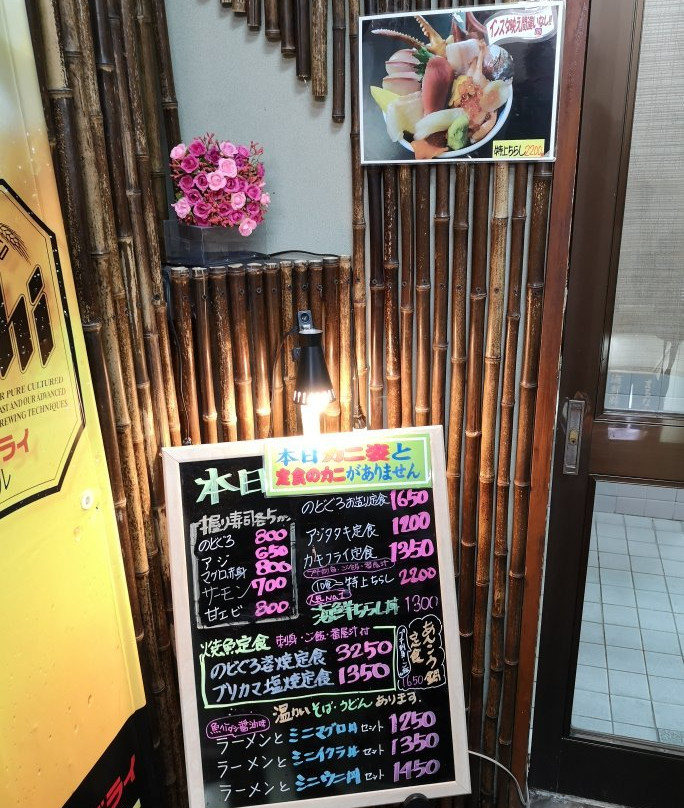 インスタ映え間違いなし!!
特上ちらし2200
hi
R PURE CULTURED
AST AND OUR ADVANCED
REWING TECHNIQUES
ライ
ル
本日カニ姿と
定食のカニがありません
本日
握り寿司各5カン
のどぐろ 800
アジ 650
マグロ赤身 800
サーモン 700
甘エビ 800
のどぐろお造り定食 1650
アジタタキ定食 1200
カキフライ定食 1350
10食 特上ちらし 2200
人気No.1
海鮮ちらし丼 1300
焼魚定食 刺身・ご飯・番屋汁付
のどぐろ岩焼定食 3250
ブリカマ塩焼定食 1350
あんこう鍋
定食
1650
温かいそば・うどんあります。
魚介ダシ醤油味
ラーメンとミニマグロ丼セット 1250
ラーメンとミニイクラ丼セット 1350
ラーメンとミニウニ丼セット 1450
ドライ